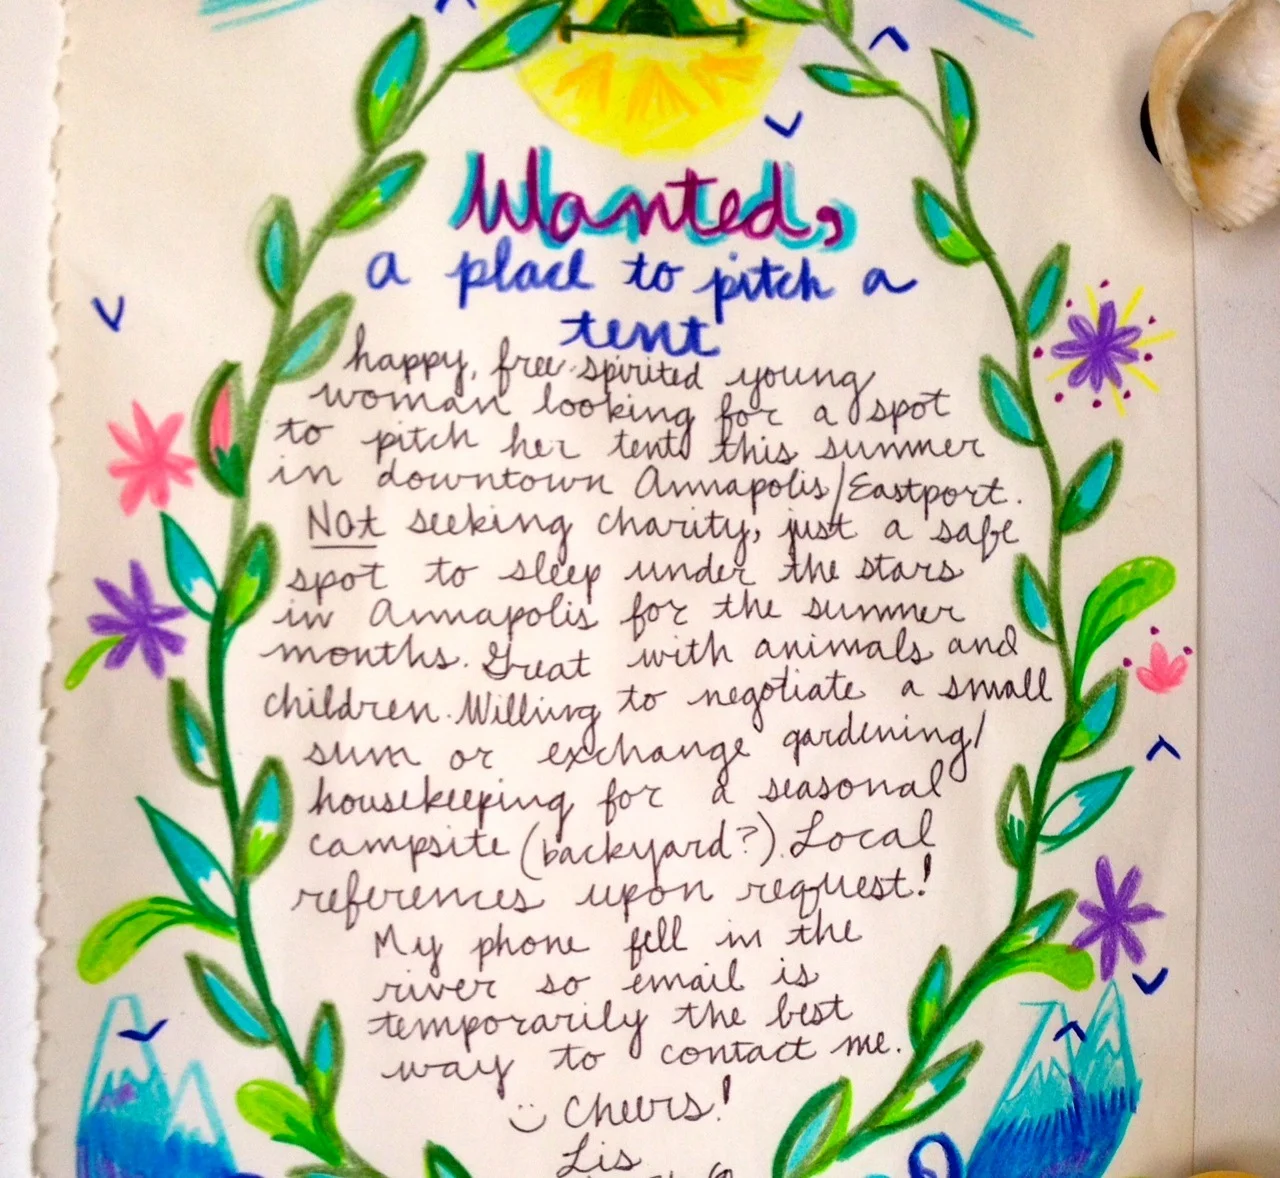 Wanted,
a place to pitch a
tent
happy, free-spirited young
woman looking for a spot
to pitch her tent this summer
in downtown Annapolis/Eastport.
Not seeking charity, just a safe
spot to sleep under the stars
in Annapolis for the summer
months. Great with animals and
children. Willing to negotiate a small
sum or exchange gardening/
housekeeping for a seasonal
campsite (backyard?). Local
references upon request!
My phone fell in the
river so email is
temporarily the best
way to contact me.
Cheers!
Lis